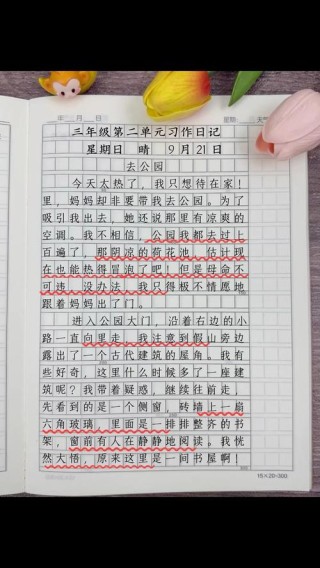 年 月 日 星期 天气
三年级第二单元习作日记
星期日 晴 9月21日
去公园
今天太热了，我只想待在家
里，妈妈却非要带我去公园。为了
吸引我出去，她还说那里有凉爽的
空调。我不相信，公园我都去过上
百遍了，那阴凉的荷花池，估计现
在也能热得冒泡了吧！但是母命不
可违，没办法，我只得极不情愿地
跟着妈妈出了门。
进入公园大门，沿着右边的小
路一直向里走，我注意到假山旁边
露出了一个古代建筑的屋角。我有
些好奇，这里什么时候多了一座建
筑呢？我带着疑惑，继续往前走，
先看到的是一个侧窗，砖墙上一扇
六角玻璃，里面是一排排整齐的书
架，窗前有人在静静地阅读。我恍
然大悟，原来这里是一间书屋啊！
15×20=300